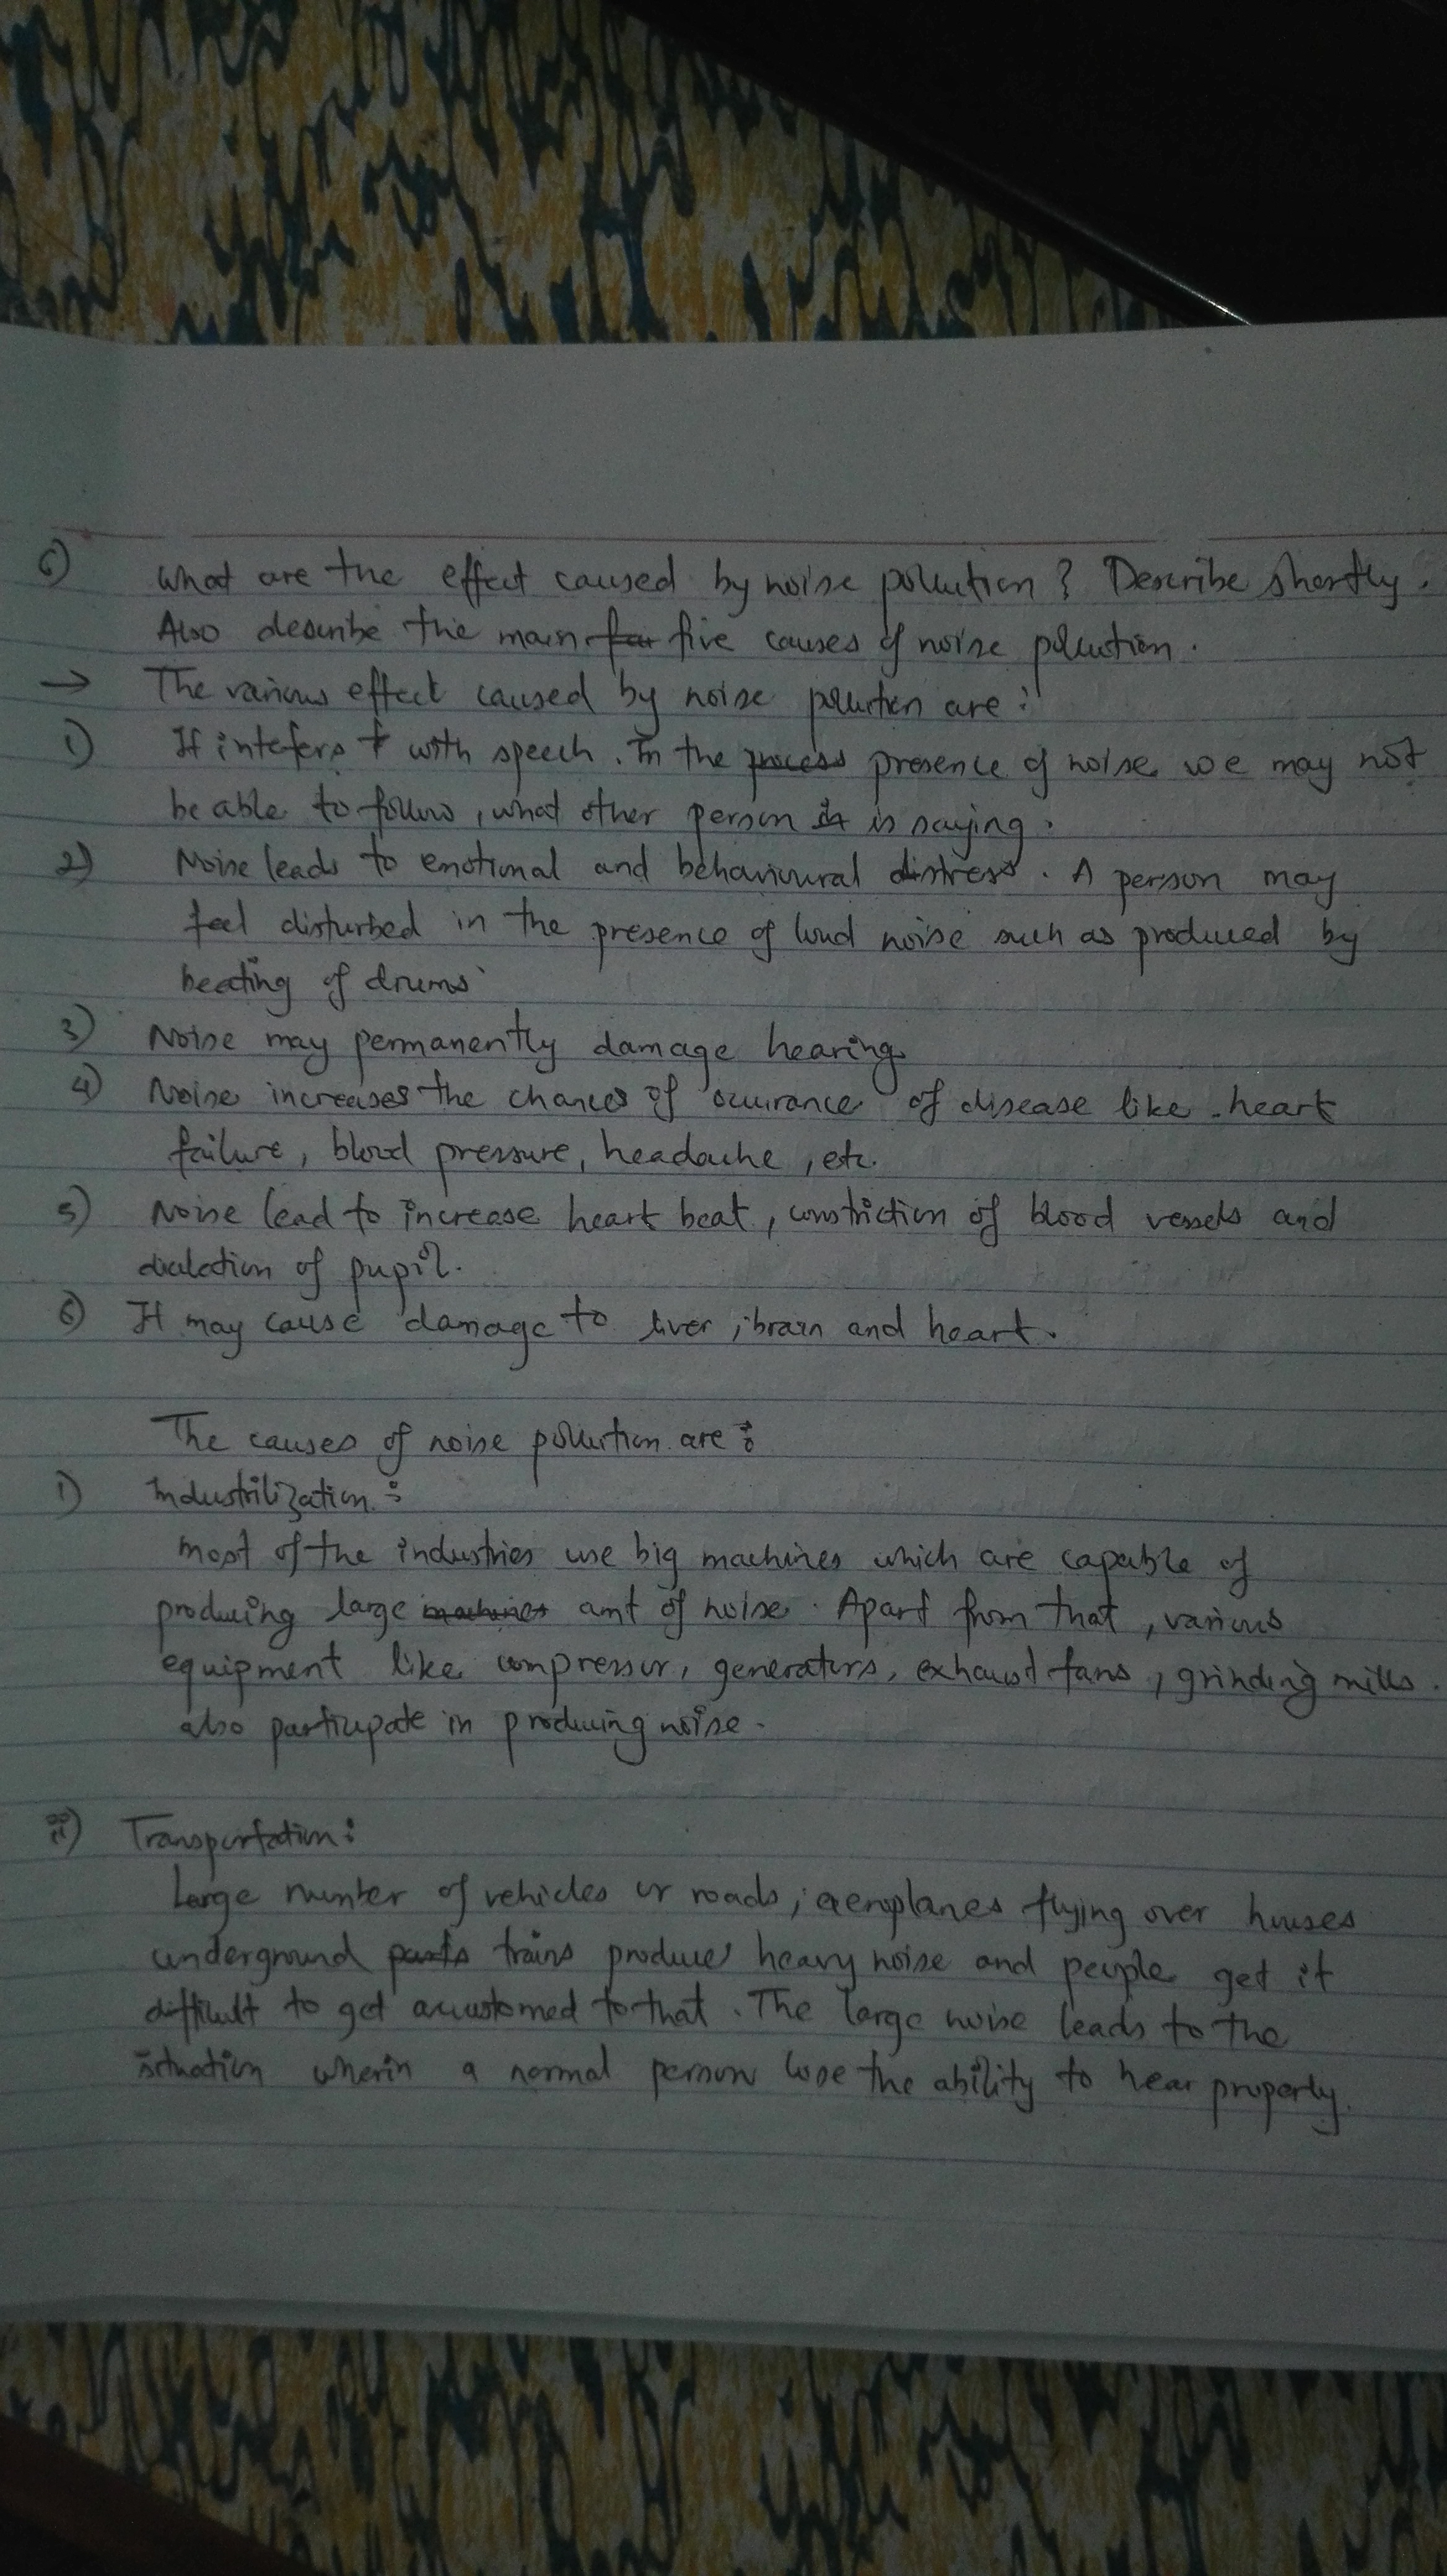 6) What are the effect caused by noise pollution ? Describe shortly.
Also describe the main five causes of noise pollution.
→ The various effect caused by noise pollution are :
1) It intefers with speech. In the presence of noise we may not
be able to follow, what other person is saying.
2) Noise leads to emotional and behavioural distress. A person may
feel disturbed in the presence of loud noise such as produced by
beating of drums
3) Noise may permanently damage hearing.
4) Noise increases the chances of occurance of disease like heart
failure, blood pressure, headache, etc.
5) Noise lead to increase heart beat, constriction of blood vessels and
of pupil.
6) It may cause damage to liver, brain and heart.
The causes of noise pollution are :
i) Industrilization :
Most of the industries use big machines which are capable of
producing large amt of noise. Apart from that, various
equipment like compressor, generators, exhaust fans, grinding mills.
also participate in producing noise.
ii) Transportation :
Large number of vehicles or roads, aeroplanes flying over houses
underground trains produces heavy noise and people get it
difficult to get accustomed to that. The large noise leads to the
situation wherin a normal person lose the ability to hear properly.